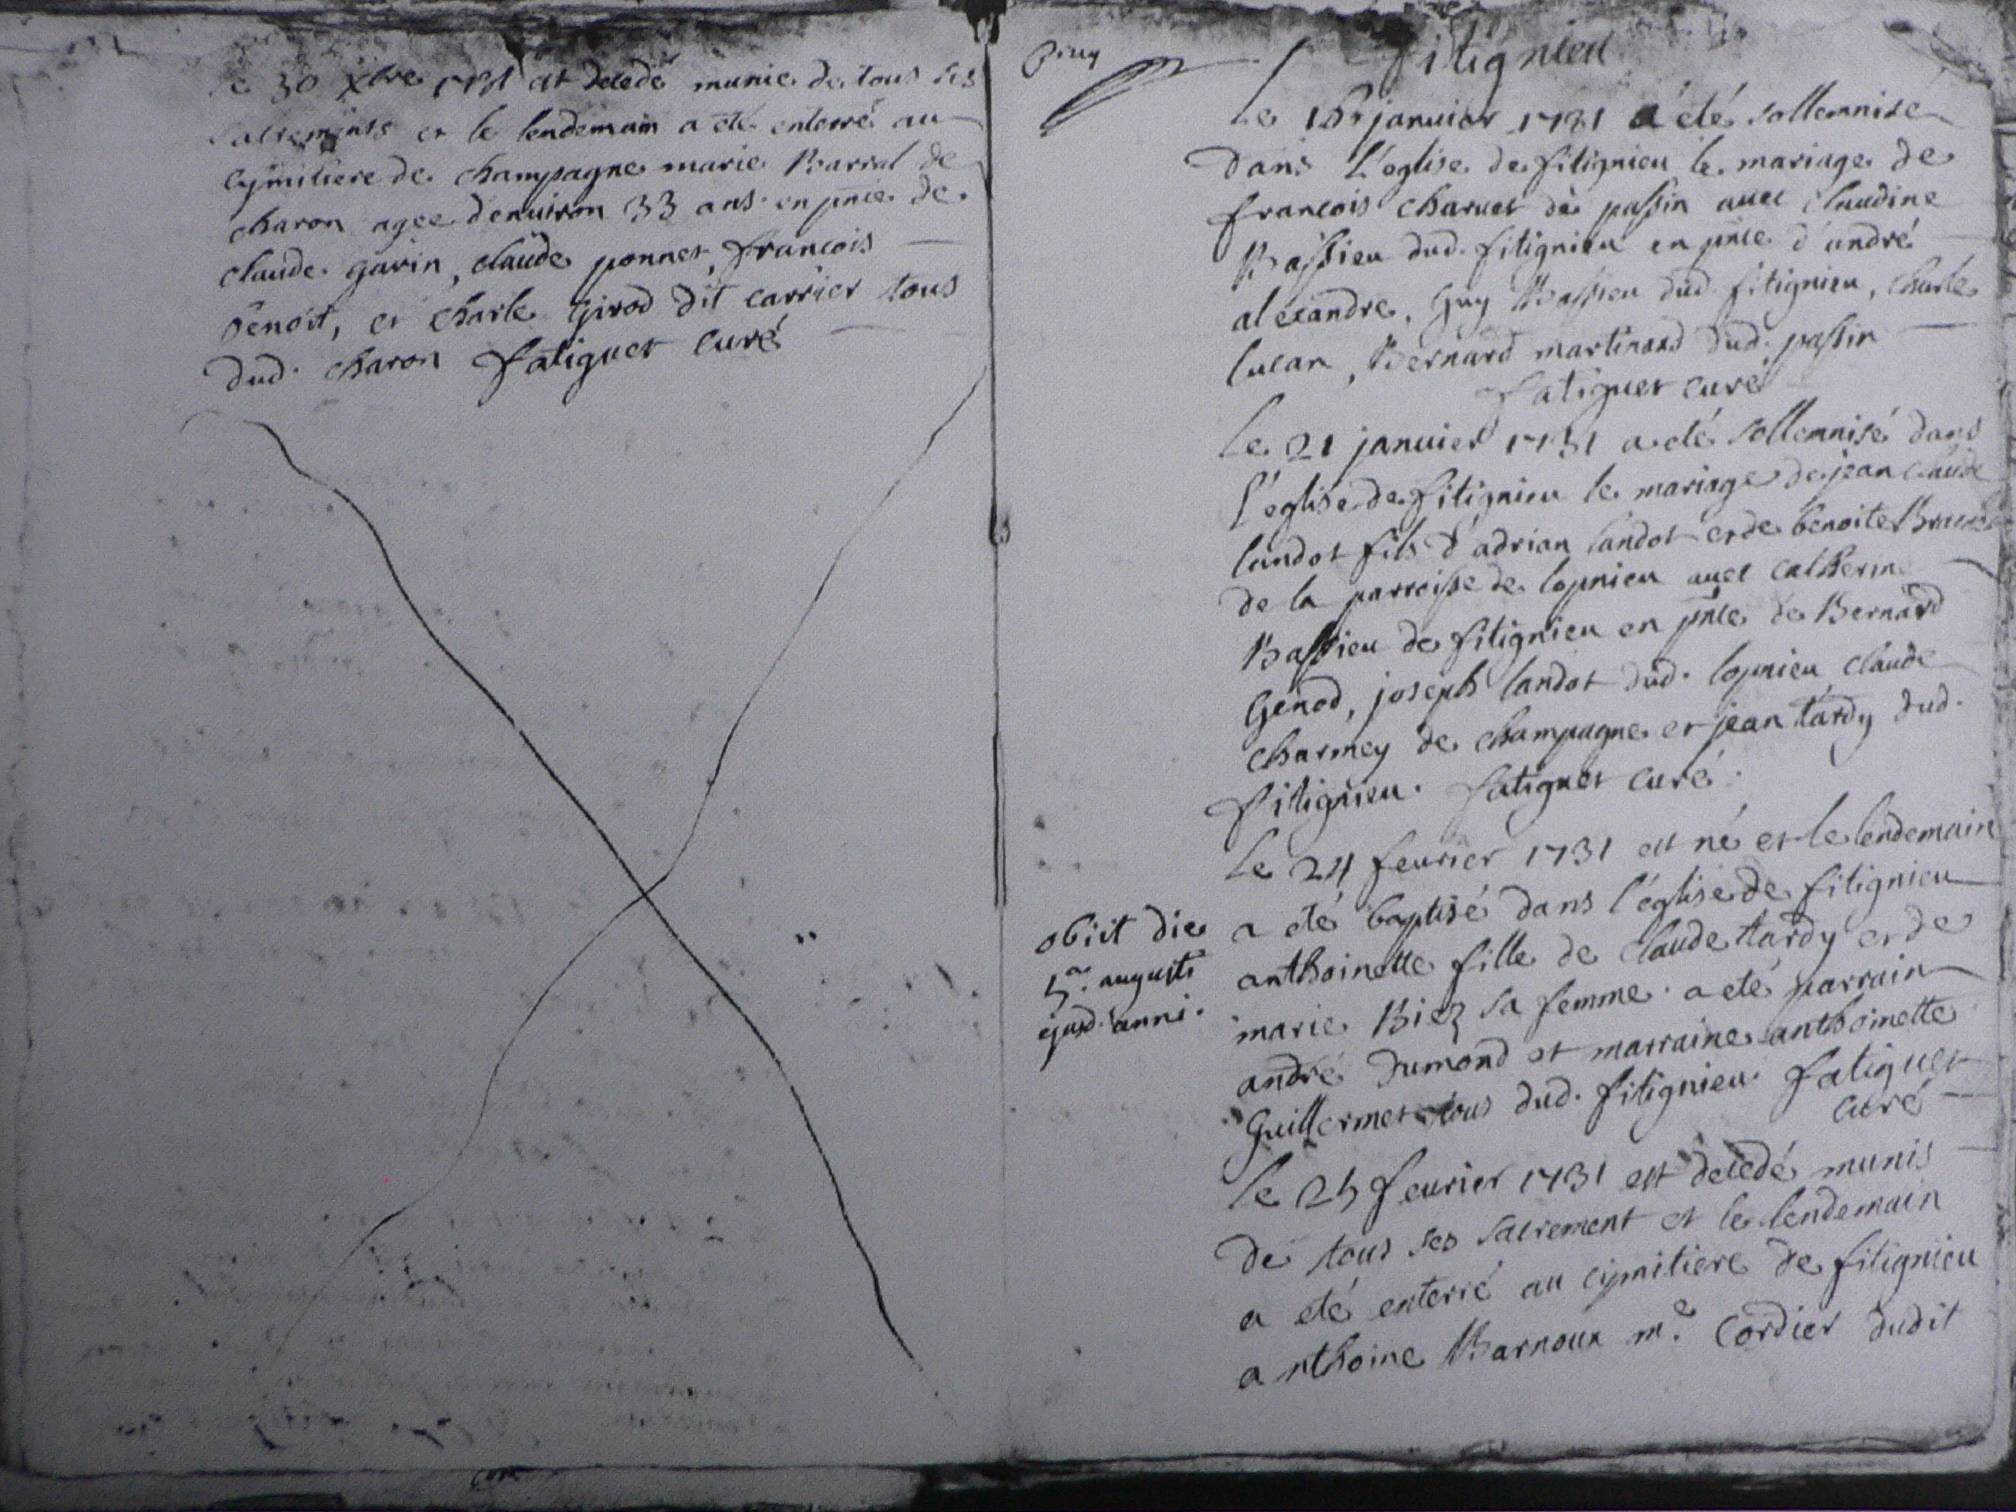 le 30 xbre 1731 est decedé munie de tous ses
sacrements et le lendemain a eté enterré au
cÿmitiere de champagne marie Barral de
charon agee d'enuiron 33 ans en pnce de
claude gavin, claude ponnet, francois
benoit, et charle girod dit carrier tous
dud. charon fatiguet curé
fitignieu
le janvier 1731 a eté sollemnise
dans l'eglise de fitignieu le mariage de
francois charvet de passin avec claudine
Bassieu dud. fitignieu en pnce d'andré
alexandre, guy Bassieu dud. fitignieu, charle
lucan, Bernard martinand dud. passin
fatiguet curé
le 21 janvier 1731 a eté sollemnisé dans
l'eglise de fitignieu le mariage de jean claude
landot fils d'adrian landot et de benoite
de la parroisse de lopnieu avec catherine
Bassieu de fitignieu en pnce de Bernard
genod, joseph landot dud. lopnieu claude
charmey de champagne et jean tardy dud.
fitignieu. fatiguet curé.
le 24 fevrier 1731 est né et le lendemain
a eté baptisé dans l'église de fitignieu
anthoinette fille de claude tardy et de
marie Biez sa femme. a eté parrain
andré dumond et marraine anthoinette
guillermet tous dud. fitignieu. fatiguet
curé
obiit die
5a. augusti
ejusd. anni.
le 25 fevrier 1731 est decedé munis
de tous ses sacrement et le lendemain
a eté enterré au cymitiere de fitignieu
anthoine Barnoux me. cordier dudit